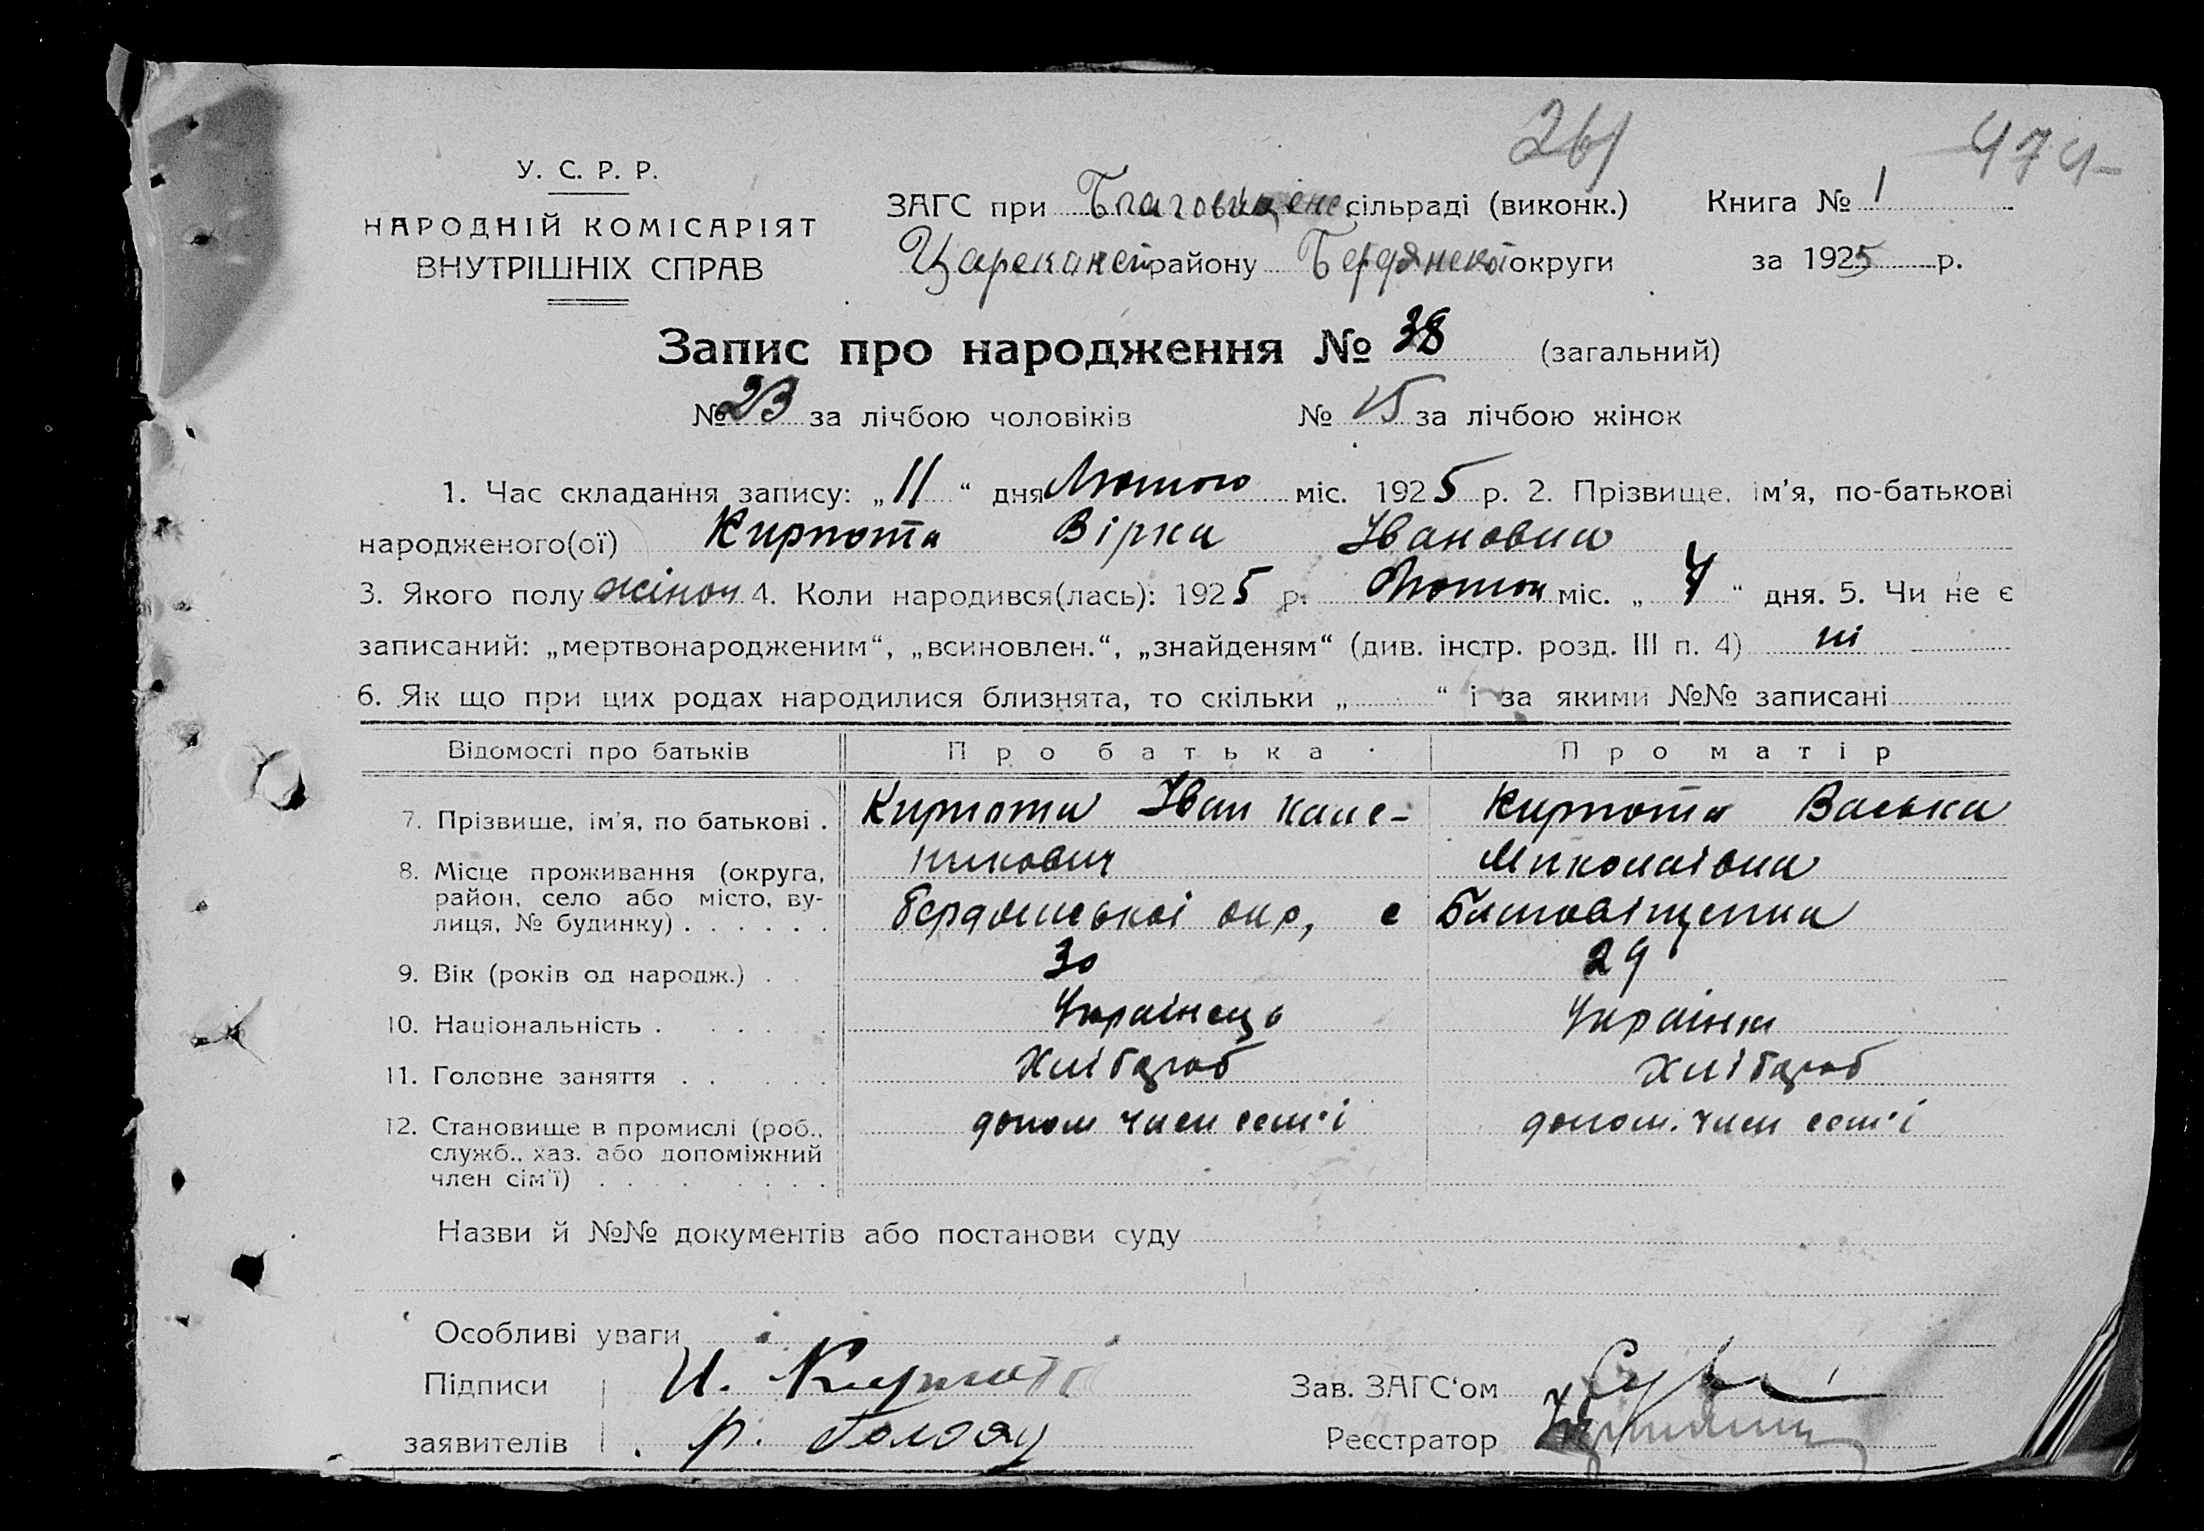 261 474
У. С. Р. Р.
НАРОДНІЙ КОМІСАРІЯТ
ВНУТРІШНІХ СПРАВ
ЗАГС при Благовіщенс сільраді (виконк.) Книга № 1
району Бердянской округи за 1925 р.
Запис про народження № 38 (загальний)
№ 23 за лічбою чоловіків № 15 за лічбою жінок
1. Час складання запису: „11“ дня Лютого міс. 1925 р. 2. Прізвище, ім'я, по-батькові
народженого(ої) Кирпота Вірка Івановна
3. Якого полу жіноч 4. Коли народився(лась): 1925 р. Лютого міс. „4“ дня. 5. Чи не є
записаний: „мертвонародженим“, „всиновлен.“, „знайденям“ (див. інстр. розд. III п. 4) ні
6. Як що при цих родах народилися близнята, то скільки „ “ і за якими №№ записані
Відомості про батьків Про батька Про матір
7. Прізвище, ім'я, по батькові . Кирпота Іван Кале- Кирпота Васька
никович Миколаівна
8. Місце проживання (округа,
район, село або місто, ву-
лиця, № будинку) . . . . . . Бердянської окр, с Благовіщенка
9. Вік (років од народж.) . . 30 29
10. Національність . . . . . Украінець Украінка
11. Головне заняття . . . . . Хлібороб Хлібороб
12. Становище в промислі (роб., допом член семʼі допом. член семʼі
служб., хаз. або допоміжний
член сім'ї) . . . . . . . .
Назви й №№ документів або постанови суду
Особливі уваги
Підписи И. Кирпота Зав. ЗАГС‘ом
заявителів Реєстратор